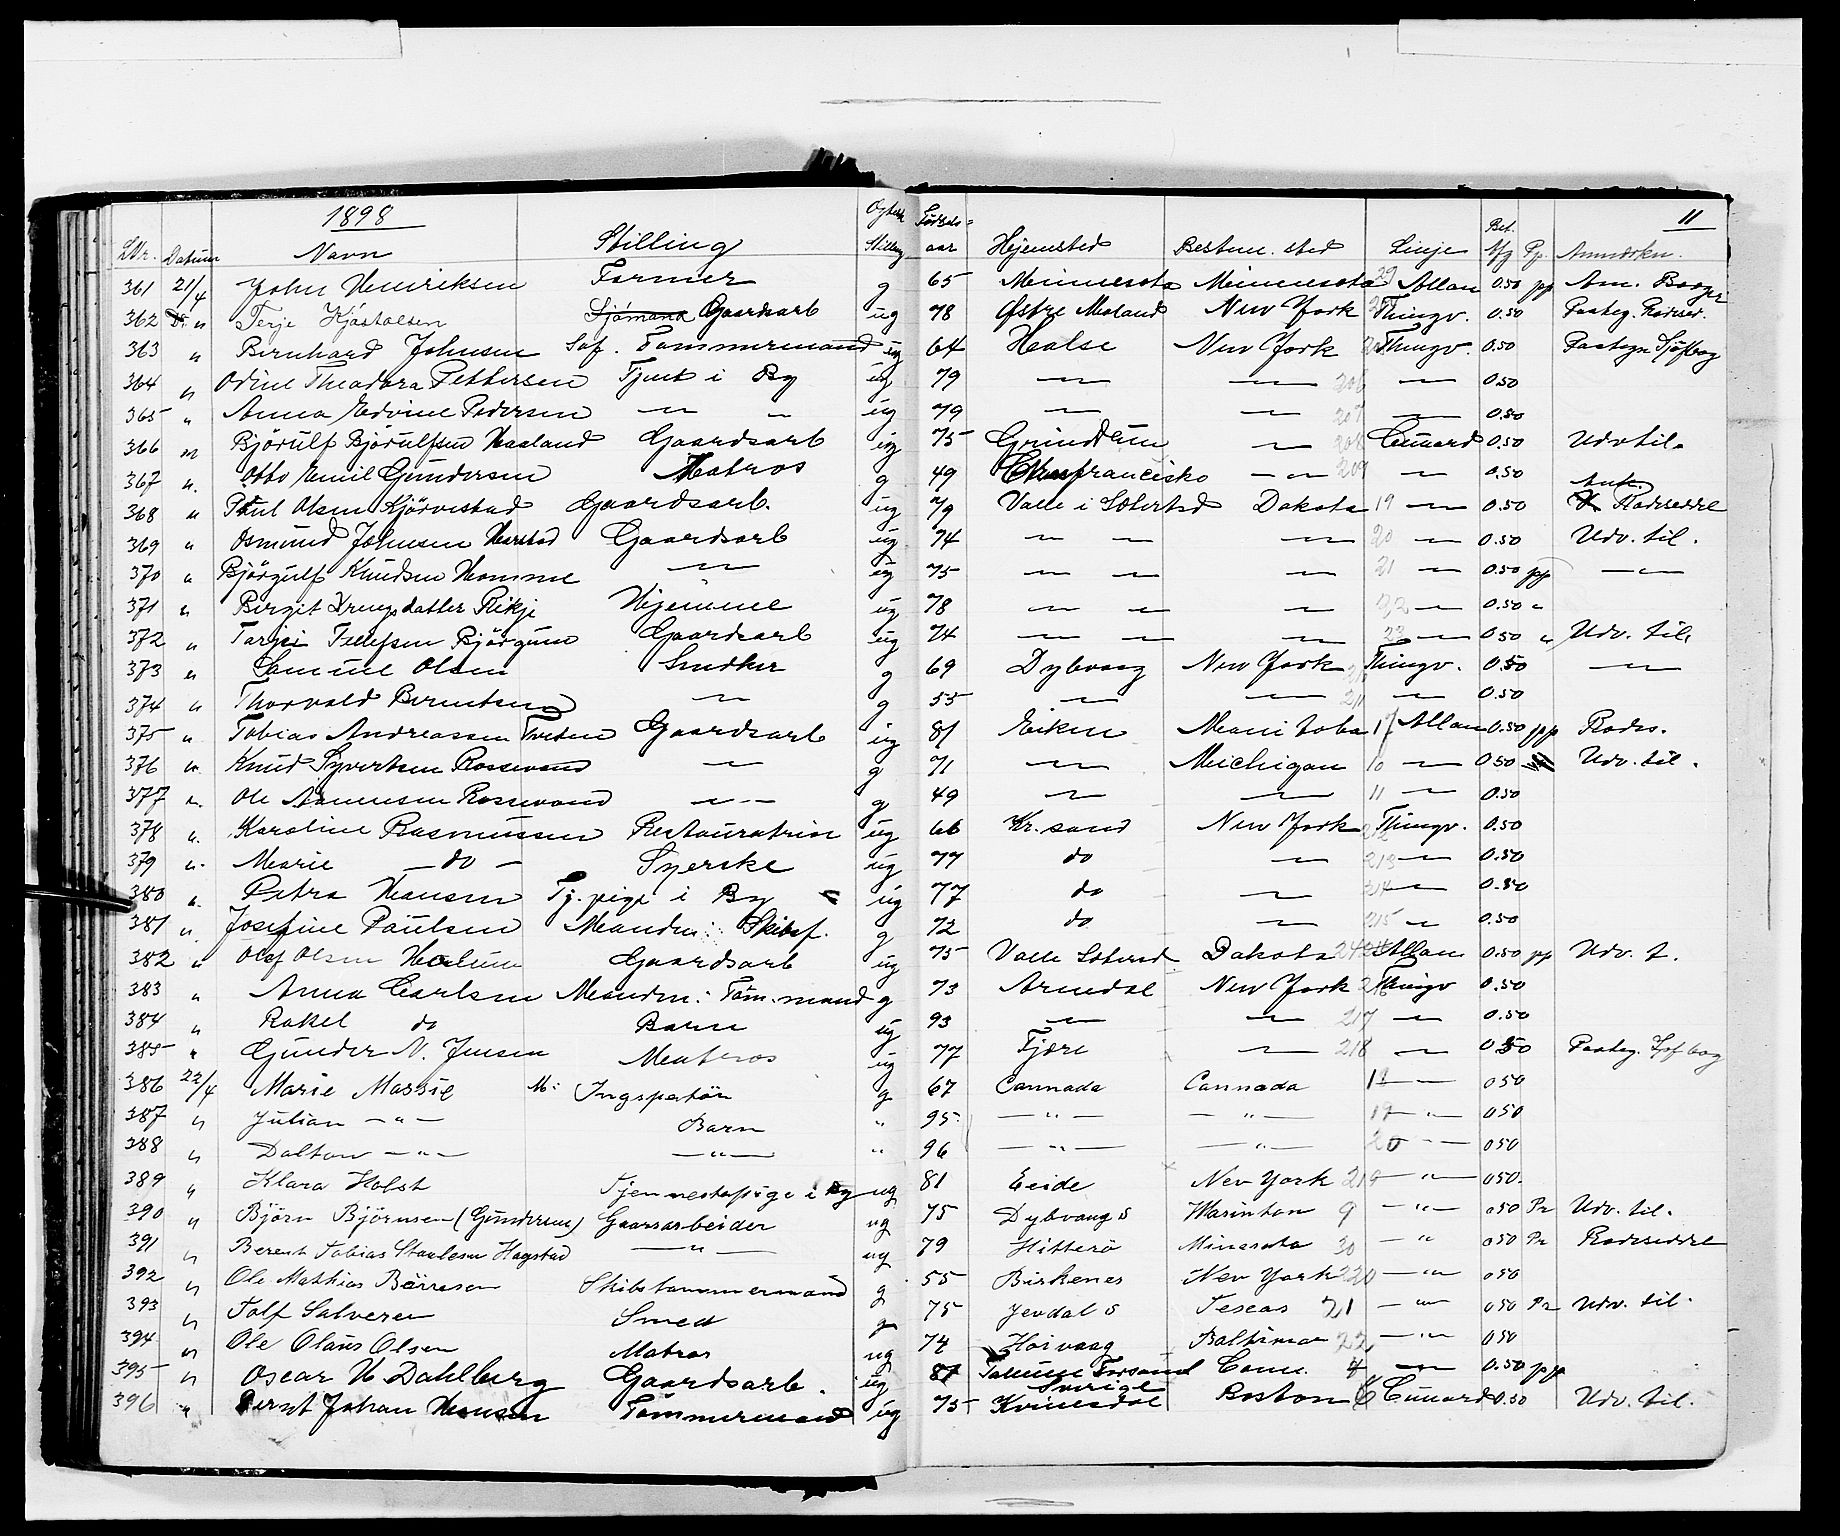 1898 11
LNr. Datum Navn Stilling Ægtesk. Stilling Fødsels= aar Hjemsted Bestem. sted Linje Bet. Afg Pp. Anmerkn.
361 21/4 John Henriksen Farmer g 65 Minnesota Minnesota 29 Allan 0.50 pp Am. Borger
362 " Terje Kjöstolsen Sjömand Gaardsarb ug 78 Østre Moland New York Thingv. 0.50 Paateg. Rodesed.
363 " Bernhard Johnsen Søf. Tømmermand ug 64 Halse New York Thingv. 0.50 Paategn Sjöfbog
364 " Odine Theodora Pettersen Tjent i By ug 79 — — 206 — 0.50
365 " Anna Edvine Pedersen — " ug 79 — — 207 — 0.50
366 " Björulf Björulfsen Haaland Gaardsarb ug 75 Grindum — 208 Cunard 0.50 Udv til.
367 " Otto Emil Gundersen Matros g 49 francisko — " — 209 — 0.50
368 " Paul Olsen Kjörvestad Gaardsarb. ug 79 Valle i Sætersd Dakota 19 — 0.50 Rodeseddel
369 " Osmund Johnsen Harstad Gaardsarb ug 74 — — — 20 — 0.50 Udv. til.
370 " Björgulf Knudsen Homme — ug 75 — — — 21 — 0.50 pp — " —
371 " Birgit Drengsdatter Rikje Hjemme ug 78 — — — 22 — 0.50 "
372 " Targei Tellefsen Björgum Gaardsarb ug 74 — — — 23 — 0.50 " Udv. til.
373 " Samuel Olsen Snedker g 69 Dybvaag New York Thingv. 0.50 —
374 " Thorvald Berntsen — g 55 — — 211 — 0.50
375 " Tobias Andreassen Tveden Gaardsarb ug 81 Eiken Manitoba 1 Allan 0.50 pp Rodes.
376 " Knud Syvertsen Rossevand — g 71 — Michigan 10 — 0.50 Udv. til.
377 " Ole Aanensen Rossevand — " — g 49 — — 11 — 0.50
378 " Karoline Rasmussen Restauratrice ug 66 Kr. sand New York 212 Thingv. 0.50
379 " Marie — do — Syerske ug 77 do — 213 — 0.50
380 " Petra Hansen Tj. pige i By ug 77 do — 214 — 0.50
381 " Josefine Paulsen Manden: Skibsf. g 72 do — 215 — 0.50
382 " Olaf Olsen Haalum Gaardsarb ug 75 Valle Sætersd. Dakota 24 Allan 0.50 pp Udv. t.
383 " Anna Carlsen Manden: Töm. mand g 73 Arendal New York 216 Thingv 0.50
384 " Rakel do Barn ug 93 — — 217 — 0.50
385 " Gunder N. Jensen Matros ug 77 Fjære — 218 — 0.50 Paateg. Sjöfbog
386 22/4 Marie Massie M: Ingspektör g 67 Cannada Cannada 18 — 050
387 " Julian — " — Barn " 95. — " — — " — 19 — " 050
388 " Dalton — " — — " — " 96 — " — — " — 20 " — 050
389 " Klara Holst Tjennestepige i By ug 81 Eeide Nev York 219 — " — 050.
390 " Björn Björnsen (Gundersen) Gaarsarbeider ug 75 Dybvaag s Warinton 9 — " — 050 Pr Udv. til.
391 " Berent Tobias Staalesen Hagstad — " — ug 79 Hitterö Minesota 30 — " 050 Pr Rodeseddel
392 " Ole Mathias Börresen Skibstømmermand g 55 Birkenes Nev York 220 — " — 050
393 " Tolf Salvesen Smed g 75 Jevdal s Texas 21 — " — 050 Pr Udv. til.
394 " Ole Olaus Olsen Matros ug 74 Höivaag Baltimor 22 — " — 050
395 " Oscar H Dahlberg Gaardsarb. ug 87 Sverige Conn. 4 — 0.50 pp
396 " Bernt Johan Hansen Tømmermand ug 75 Kvinesdal Boston 6 Cunard 0.50 Udv. til.